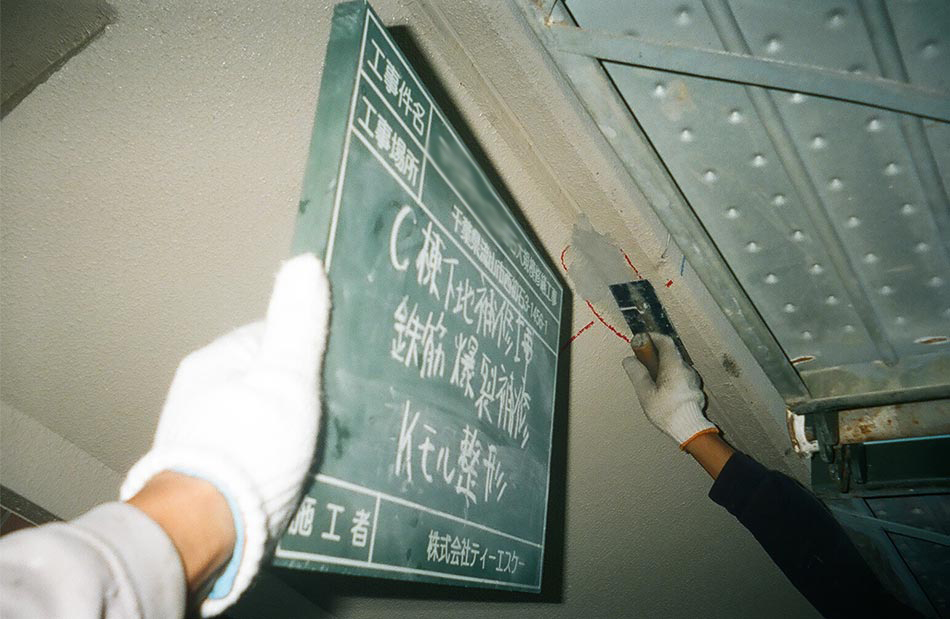 工事件名 大規模修繕工事
工事場所 千葉県流山市
C棟下地補修工事
鉄筋爆裂補修
Kモル整形
施工者 株式会社ティーエスケー